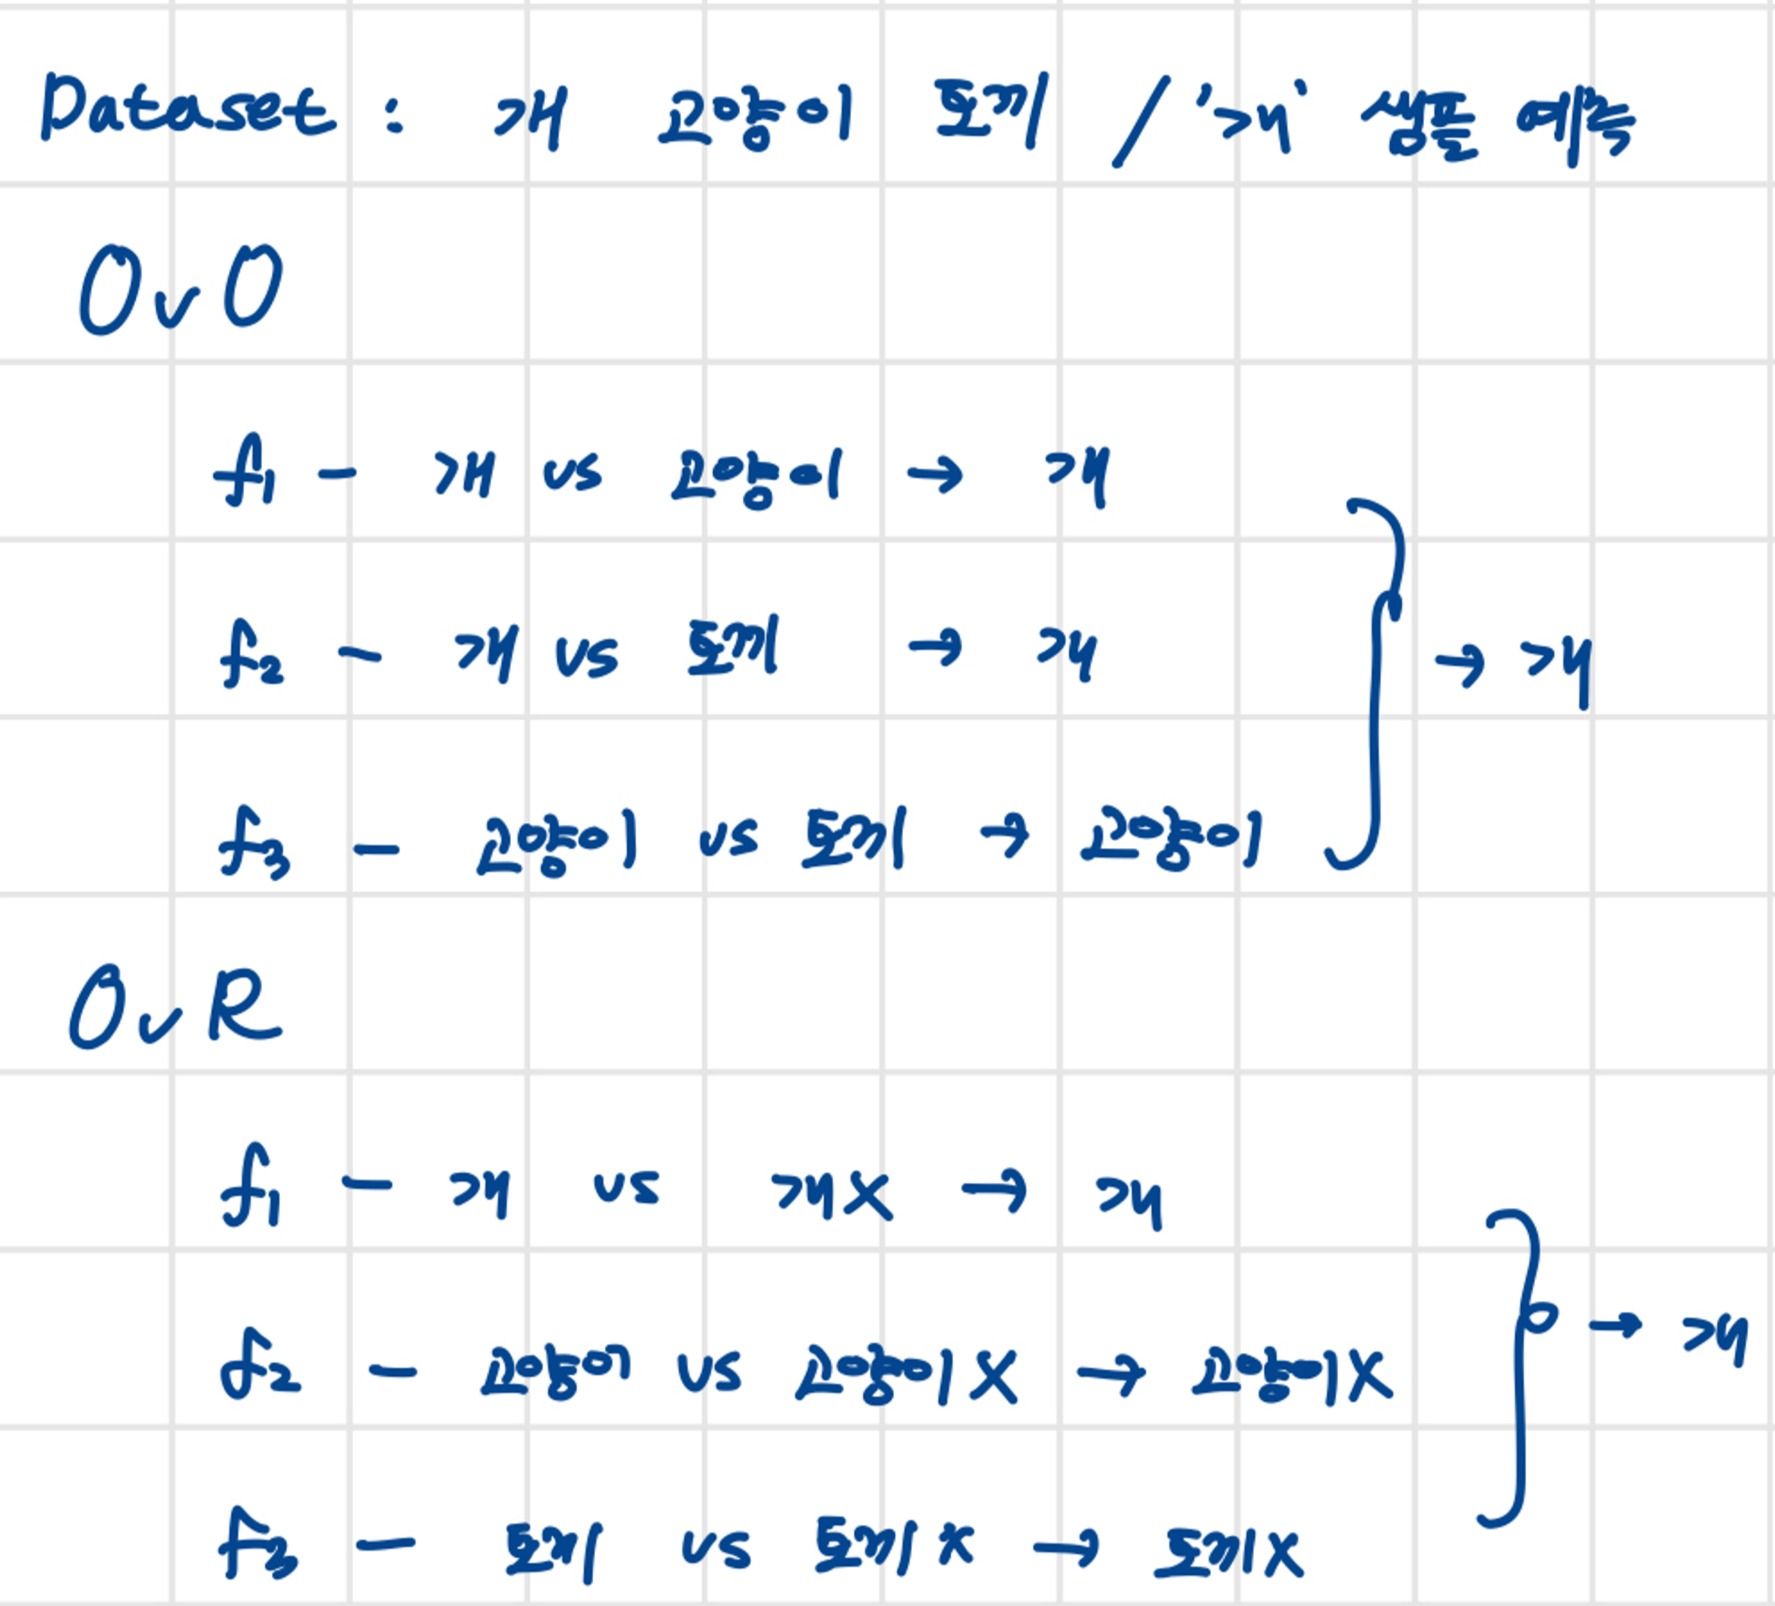 Dataset : 개 고양이 토끼 / '개' 샘플 예측
OvO
f1 - 개 vs 고양이 → 개
f2 - 개 vs 토끼 → 개
→ 개
f3 - 고양이 vs 토끼 → 고양이
OvR
f1 - 개 vs 개X → 개
f2 - 고양이 vs 고양이X → 고양이X
→ 개
f3 - 토끼 vs 토끼X → 토끼X